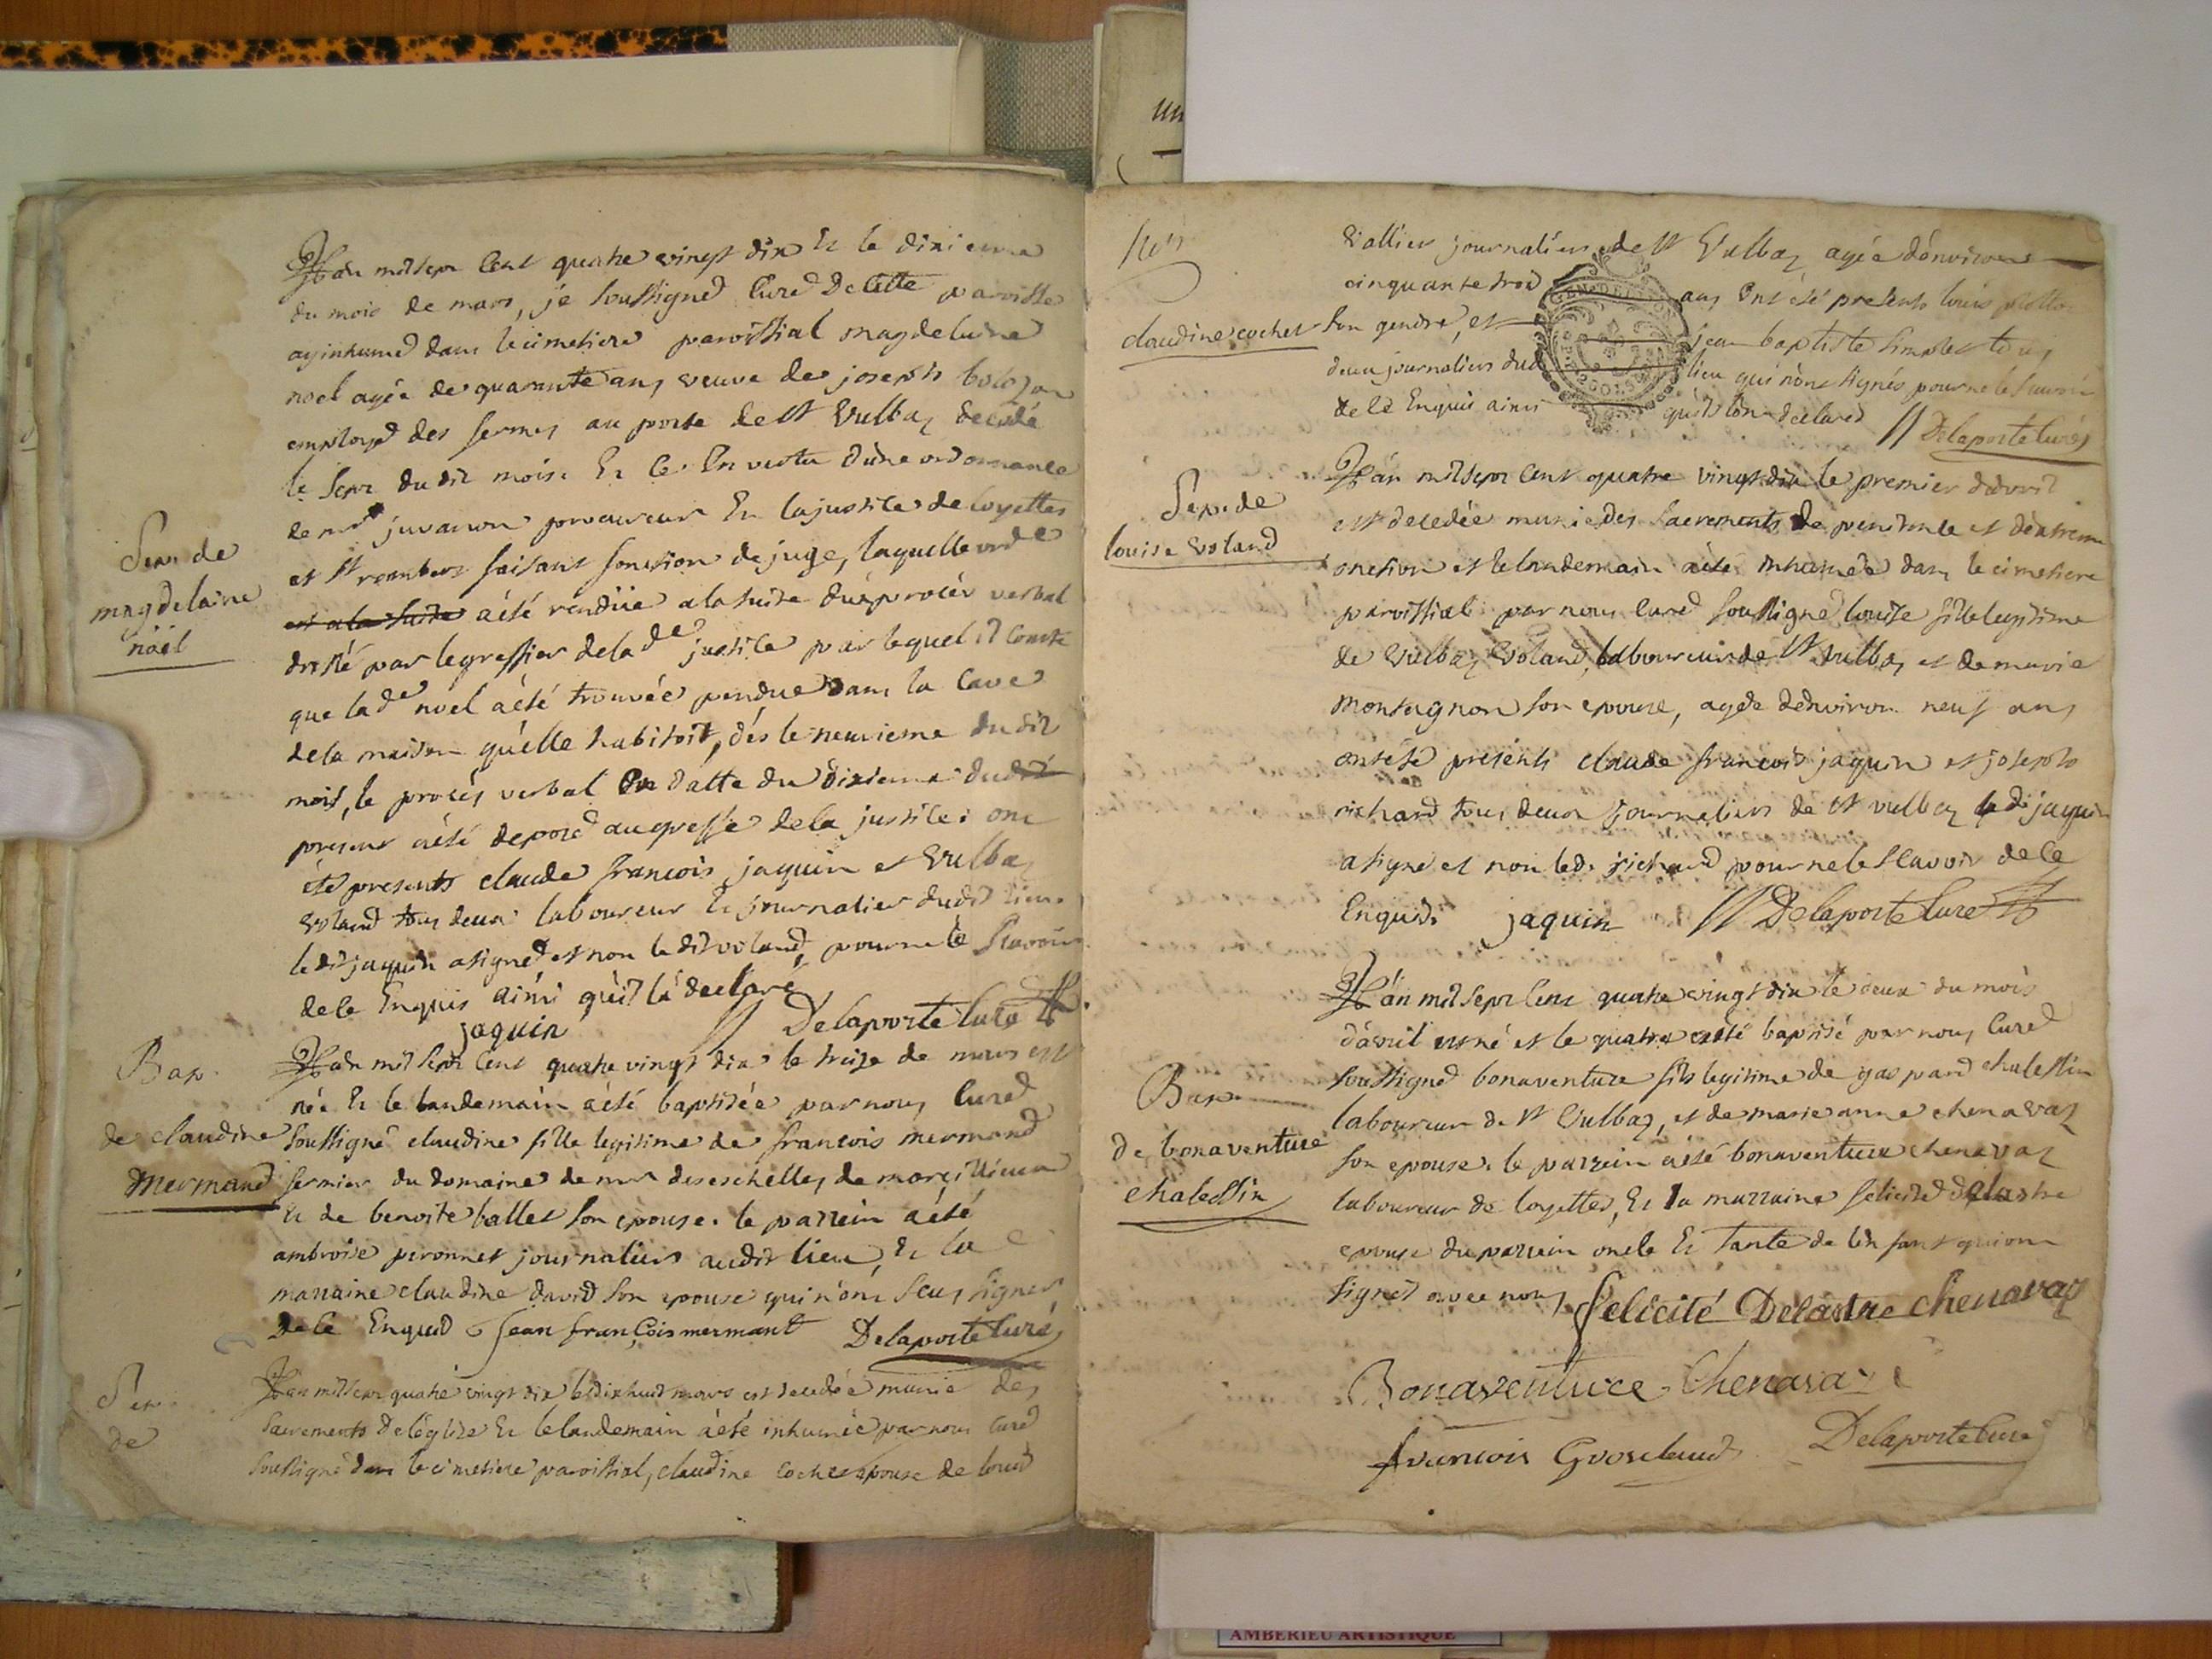 Sepu. de
magdelaine
noël
L'an mil sept cent quatre vingt dix Et le dixieme
du mois de mars, je soussigned Cured De Cette paroisse
ay inhumed dans le cimetiere paroissial magdeleine
noel agée de quarante ans veuve de joseph bolozon
employed des fermes au poste de st Vulbaz decedé
le sept du dit mois. Et Ce En vertu d'une ordonnance
de mr juvanon procureur En la justice de loyettes
et st rambert faisant fonction de juge, laquelle ord.e
est a la suite a été rendüe a la suite du procés verbal
dressé par le greffier de la de justice par lequel il conste
que la de noël a été trouvée pendue dans la Cave
de la maison qu'elle habitoit, dés le neuvieme du dit
mois, le procés verbal En datte du dixieme dudit
present a été deposed au greffe de la justice: ont
été presents claude francois jaquin et Vulbaz
voland tous deux laboureur Et journalier dudit lieu.
ledit jaquin a signed et non le dit voland, pour ne le scavoir
de ce Enquis ainsi qu'il la declaré
jaquin Delaporte Curé
Bap.
de claudine
Mermand
L'an mil sept Cent quatre vingt dix le treize de mars est
née Et le landemain a été baptisée par nous Cured
soussigné claudine fille legitime de francois mermand
fermier du domaine de mr deseschelles de marcillieux
Et de benoite ballet son epouse. le parrein a été
ambroise peronnet journaliers audit lieu, Et la
marraine claudine david son epouse qui n'ont scus signer
de ce Enquis Jean françois mermant Delaporte Curé
Sep.
de
L'an mil sept quatre vingt dix le dixhuit mars est decedée munie des
sacrements de l'église Et le landemain a été inhumée par nous Cured
soussigné dans le cimetiere paroissial, claudine cochet epouse de louis
claudine cochet
Vallier journaliers de st Vulbaz agée d'environ
cinquante trois ans Ont été presents louis
son gendre, et jean baptiste simplet tous
deux journaliers dud lieu qui n'ont signés pour ne le scavoir
de ce Enquis ainsi qu'ils l'on declared
Delaporte Curé
Sepu. de
louise voland
L'an mil sept Cent quatre vingt dix le premier d'avril
est decedée munie des Sacrements de penitence et d'extreme
onction et le landemain a été inhumée dans le cimetiere
paroissial par nous Cured soussigné louise fille legitime
de Vulbaz Voland, laboureur de st Vulbaz et de marie
montagnon son epouse, agée d'environ neuf ans
ont été présents claude francois jaquin et joseph
richard tous deux journaliers de st vulbaz le d. jaquin
a signé et non led. richard pour ne le scavoir de ce
Enquis. jaquin Delaporte Curé
Bap.
de bonaventure
chalessin
L'an mil sept Cent quatre vingt dix le deux du mois
d'avril est né et le quatre a été baptisé par nous Cured
soussigned bonaventure fils legitime de gaspard chalessin
laboureur de st Vulbaz, et de marie anne chenavaz
son epouse. le parrein a été bonaventure chenavaz
laboureur de loyettes, Et la marraine felicité delastre
epouse du parrein oncle Et Tante de l'enfant qui ont
signés avec nous felicité Delastre chenavaz
Bonaventure Chenavaz
francois Grosclaud Delaporte Curé
AMBERIEU ARTISTIQUE